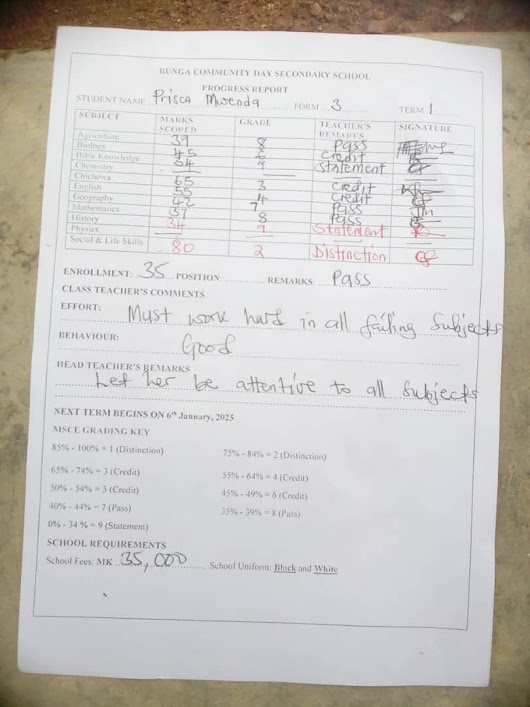 BUNGA COMMUNITY DAY SECONDARY SCHOOL
PROGRESS REPORT
STUDENT NAME Prisca Mwenda FORM 3 TERM 1
SUBJECT MARKS SCORED GRADE TEACHER'S REMARKS SIGNATURE
Agriculture 39 8 Pass
Biology 45 Credit
Bible Knowledge
Chemistry 34 9 Statement
Chichewa
English 65 3 Credit
Geography 55 4 Credit
Mathematics 42 Pass
History 37 8 Pass
Physics 34 9 Statement
Social & Life Skills 80 2 Distinction
ENROLLMENT: 35 POSITION REMARKS: Pass
CLASS TEACHER'S COMMENTS
EFFORT: Must work hard in all failing Subjects
BEHAVIOUR: Good
HEAD TEACHER'S REMARKS
Let her be attentive to all Subjects
NEXT TERM BEGINS ON 6th January, 2025
MSCE GRADING KEY
85% - 100% = 1 (Distinction) 75% - 84% = 2 (Distinction)
65% - 74% = 3 (Credit) 55% - 64% = 4 (Credit)
50% - 54% = 5 (Credit) 45% - 49% = 6 (Credit)
40% - 44% = 7 (Pass) 35% - 39% = 8 (Pass)
0% - 34 % = 9 (Statement)
SCHOOL REQUIREMENTS
School Fees: MK 35,000 School Uniform: Black and White